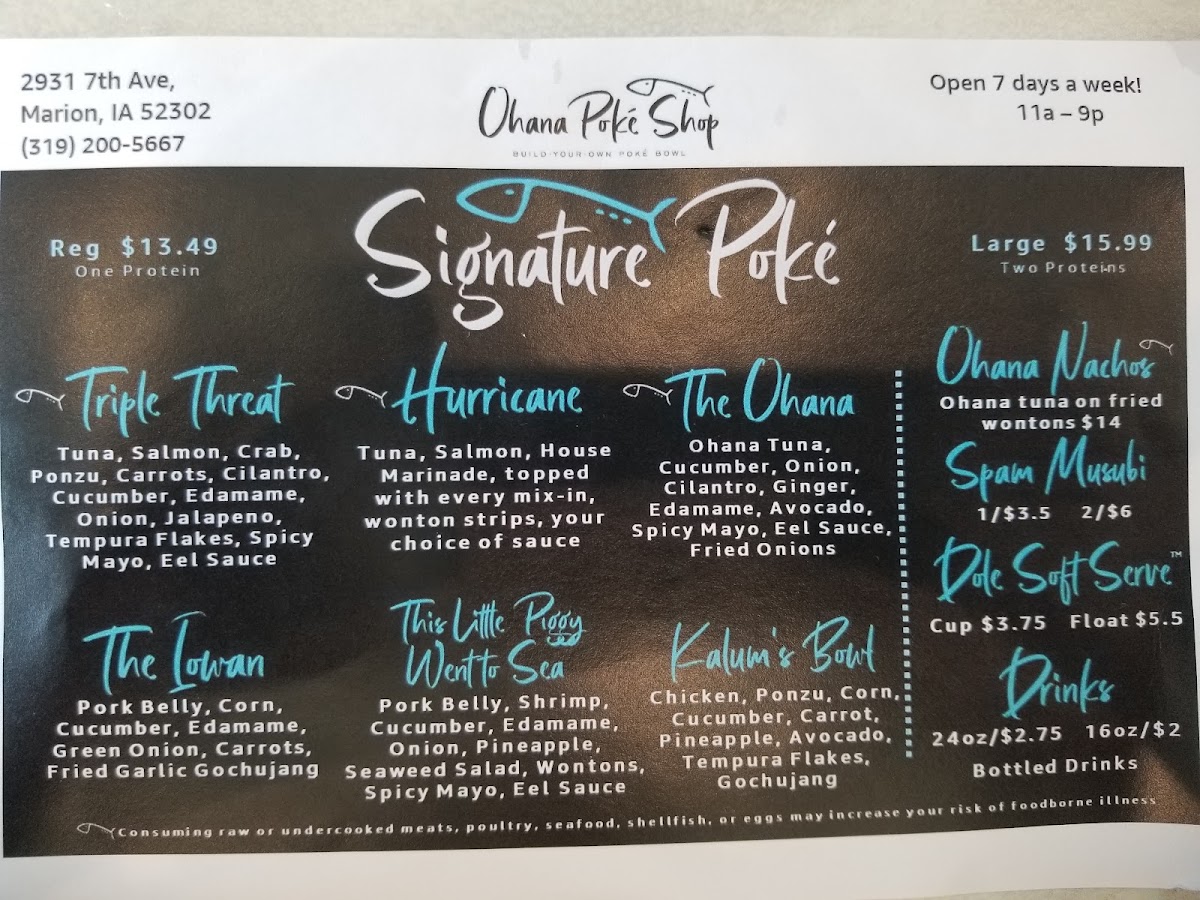 2931 7th Ave,
Marion, IA 52302
(319) 200-5667
Ohana Poké Shop
BUILD-YOUR-OWN POKÉ BOWL
Open 7 days a week!
11a – 9p
Signature Poké
Reg $13.49
One Protein
Large $15.99
Two Proteins
Triple Threat
Tuna, Salmon, Crab,
Ponzu, Carrots, Cilantro,
Cucumber, Edamame,
Onion, Jalapeno,
Tempura Flakes, Spicy
Mayo, Eel Sauce
Hurricane
Tuna, Salmon, House
Marinade, topped
with every mix-in,
wonton strips, your
choice of sauce
The Ohana
Ohana Tuna,
Cucumber, Onion,
Cilantro, Ginger,
Edamame, Avocado,
Spicy Mayo, Eel Sauce,
Fried Onions
The Iowan
Pork Belly, Corn,
Cucumber, Edamame,
Green Onion, Carrots,
Fried Garlic Gochujang
This Little Piggy
Went to Sea
Pork Belly, Shrimp,
Cucumber, Edamame,
Onion, Pineapple,
Seaweed Salad, Wontons,
Spicy Mayo, Eel Sauce
Kalum's Bowl
Chicken, Ponzu, Corn,
Cucumber, Carrot,
Pineapple, Avocado,
Tempura Flakes,
Gochujang
Ohana Nachos
Ohana tuna on fried
wontons $14
Spam Musubi
1/$3.5 2/$6
Dole Soft Serve™
Cup $3.75 Float $5.5
Drinks
24oz/$2.75 16oz/$2
Bottled Drinks
Consuming raw or undercooked meats, poultry, seafood, shellfish, or eggs may increase your risk of foodborne illness